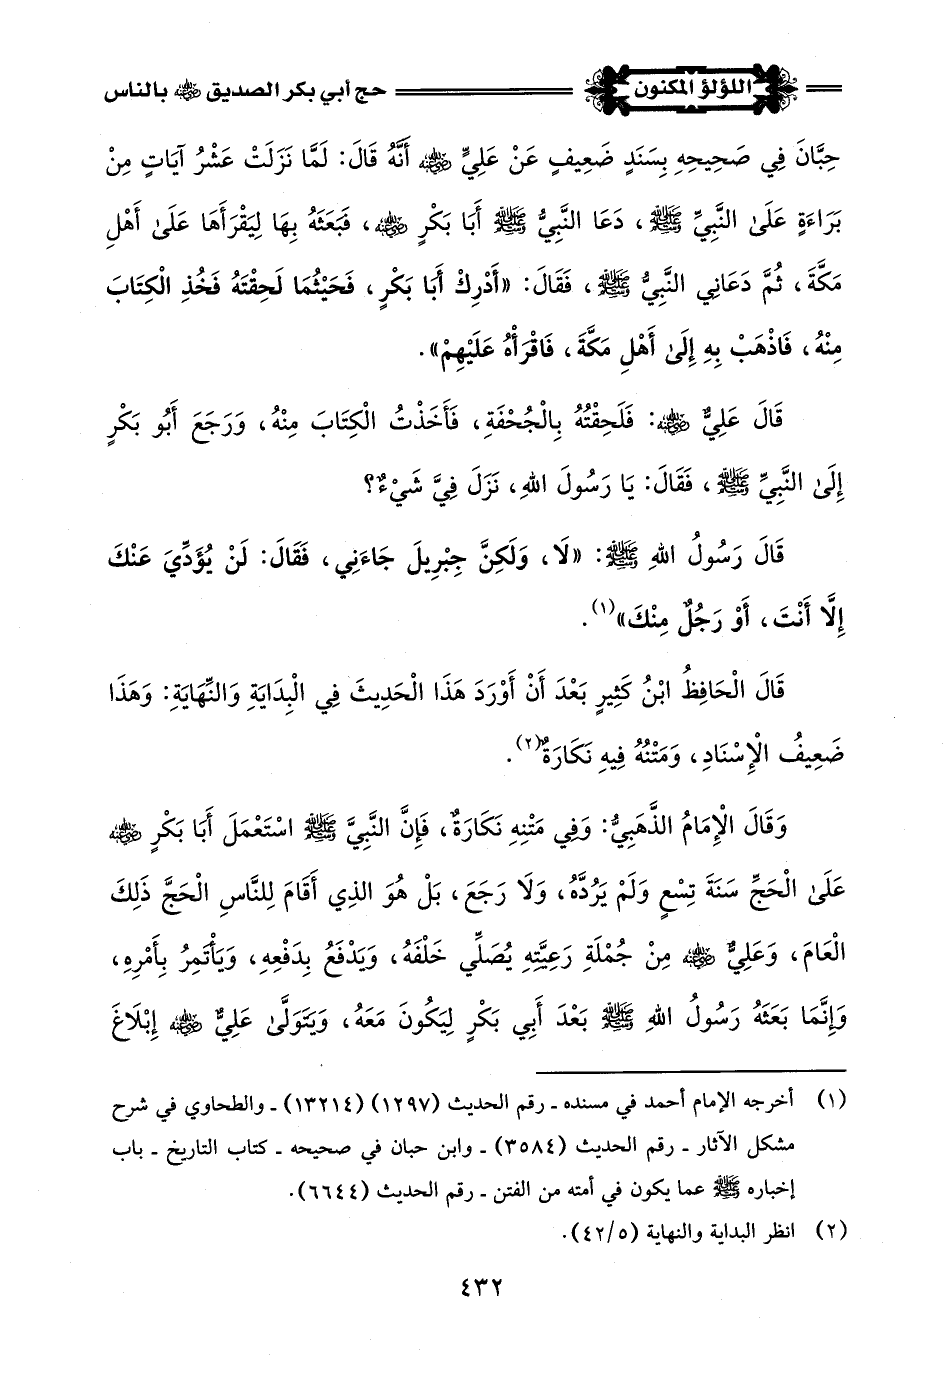 اللؤلؤ المكنون
حج أبي بكر الصديق رضي الله عنه بالناس
حِبَّانَ فِي صَحِيحِهِ بِسَنَدٍ ضَعِيفٍ عَنْ عَلِيٍّ رضي الله عنه أَنَّهُ قَالَ: لَمَّا نَزَلَتْ عَشْرُ آيَاتٍ مِنْ
بَرَاءَةٍ عَلَىٰ النَّبِيِّ ﷺ، دَعَا النَّبِيُّ ﷺ أَبَا بَكْرٍ رضي الله عنه، فَبَعَثَهُ بِهَا لِيَقْرَأَهَا عَلَىٰ أَهْلِ
مَكَّةَ، ثُمَّ دَعَانِي النَّبِيُّ ﷺ، فَقَالَ: «أَدْرِكْ أَبَا بَكْرٍ، فَحَيْثُمَا لَحِقْتَهُ فَخُذِ الْكِتَابَ
مِنْهُ، فَاذْهَبْ بِهِ إِلَىٰ أَهْلِ مَكَّةَ، فَاقْرَأْهُ عَلَيْهِمْ».
قَالَ عَلِيٌّ رضي الله عنه: فَلَحِقْتُهُ بِالْجُحْفَةِ، فَأَخَذْتُ الْكِتَابَ مِنْهُ، وَرَجَعَ أَبُو بَكْرٍ
إِلَىٰ النَّبِيِّ ﷺ، فَقَالَ: يَا رَسُولَ اللهِ، نَزَلَ فِيَّ شَيْءٌ؟
قَالَ رَسُولُ اللهِ ﷺ: «لَا، وَلَكِنَّ جِبْرِيلَ جَاءَنِي، فَقَالَ: لَنْ يُؤَدِّيَ عَنْكَ
إِلَّا أَنْتَ، أَوْ رَجُلٌ مِنْكَ»(١).
قَالَ الْحَافِظُ ابْنُ كَثِيرٍ بَعْدَ أَنْ أَوْرَدَ هَذَا الْحَدِيثَ فِي الْبِدَايَةِ وَالنِّهَايَةِ: وَهَذَا
ضَعِيفُ الْإِسْنَادِ، وَمَتْنُهُ فِيهِ نَكَارَةٌ(٢).
وَقَالَ الْإِمَامُ الذَّهَبِيُّ: وَفِي مَتْنِهِ نَكَارَةٌ، فَإِنَّ النَّبِيَّ ﷺ اسْتَعْمَلَ أَبَا بَكْرٍ رضي الله عنه
عَلَىٰ الْحَجِّ سَنَةَ تِسْعٍ وَلَمْ يَرُدَّهُ، وَلَا رَجَعَ، بَلْ هُوَ الذِي أَقَامَ لِلنَّاسِ الْحَجَّ ذَلِكَ
الْعَامَ، وَعَلِيٌّ رضي الله عنه مِنْ جُمْلَةِ رَعِيَّتِهِ يُصَلِّي خَلْفَهُ، وَيَدْفَعُ بِدَفْعِهِ، وَيَأْتَمِرُ بِأَمْرِهِ،
وَإِنَّمَا بَعَثَهُ رَسُولُ اللهِ ﷺ بَعْدَ أَبِي بَكْرٍ لِيَكُونَ مَعَهُ، وَيَتَوَلَّىٰ عَلِيٌّ رضي الله عنه إِبْلَاغَ
(١) أخرجه الإمام أحمد في مسنده ـ رقم الحديث (١٢٩٧) (١٣٢١٤) ـ والطحاوي في شرح
مشكل الآثار ـ رقم الحديث (٣٥٨٤) ـ وابن حبان في صحيحه ـ كتاب التاريخ ـ باب
إخباره ﷺ عما يكون في أمته من الفتن ـ رقم الحديث (٦٦٤٤).
(٢) انظر البداية والنهاية (٤٢/٥).
٤٣٢